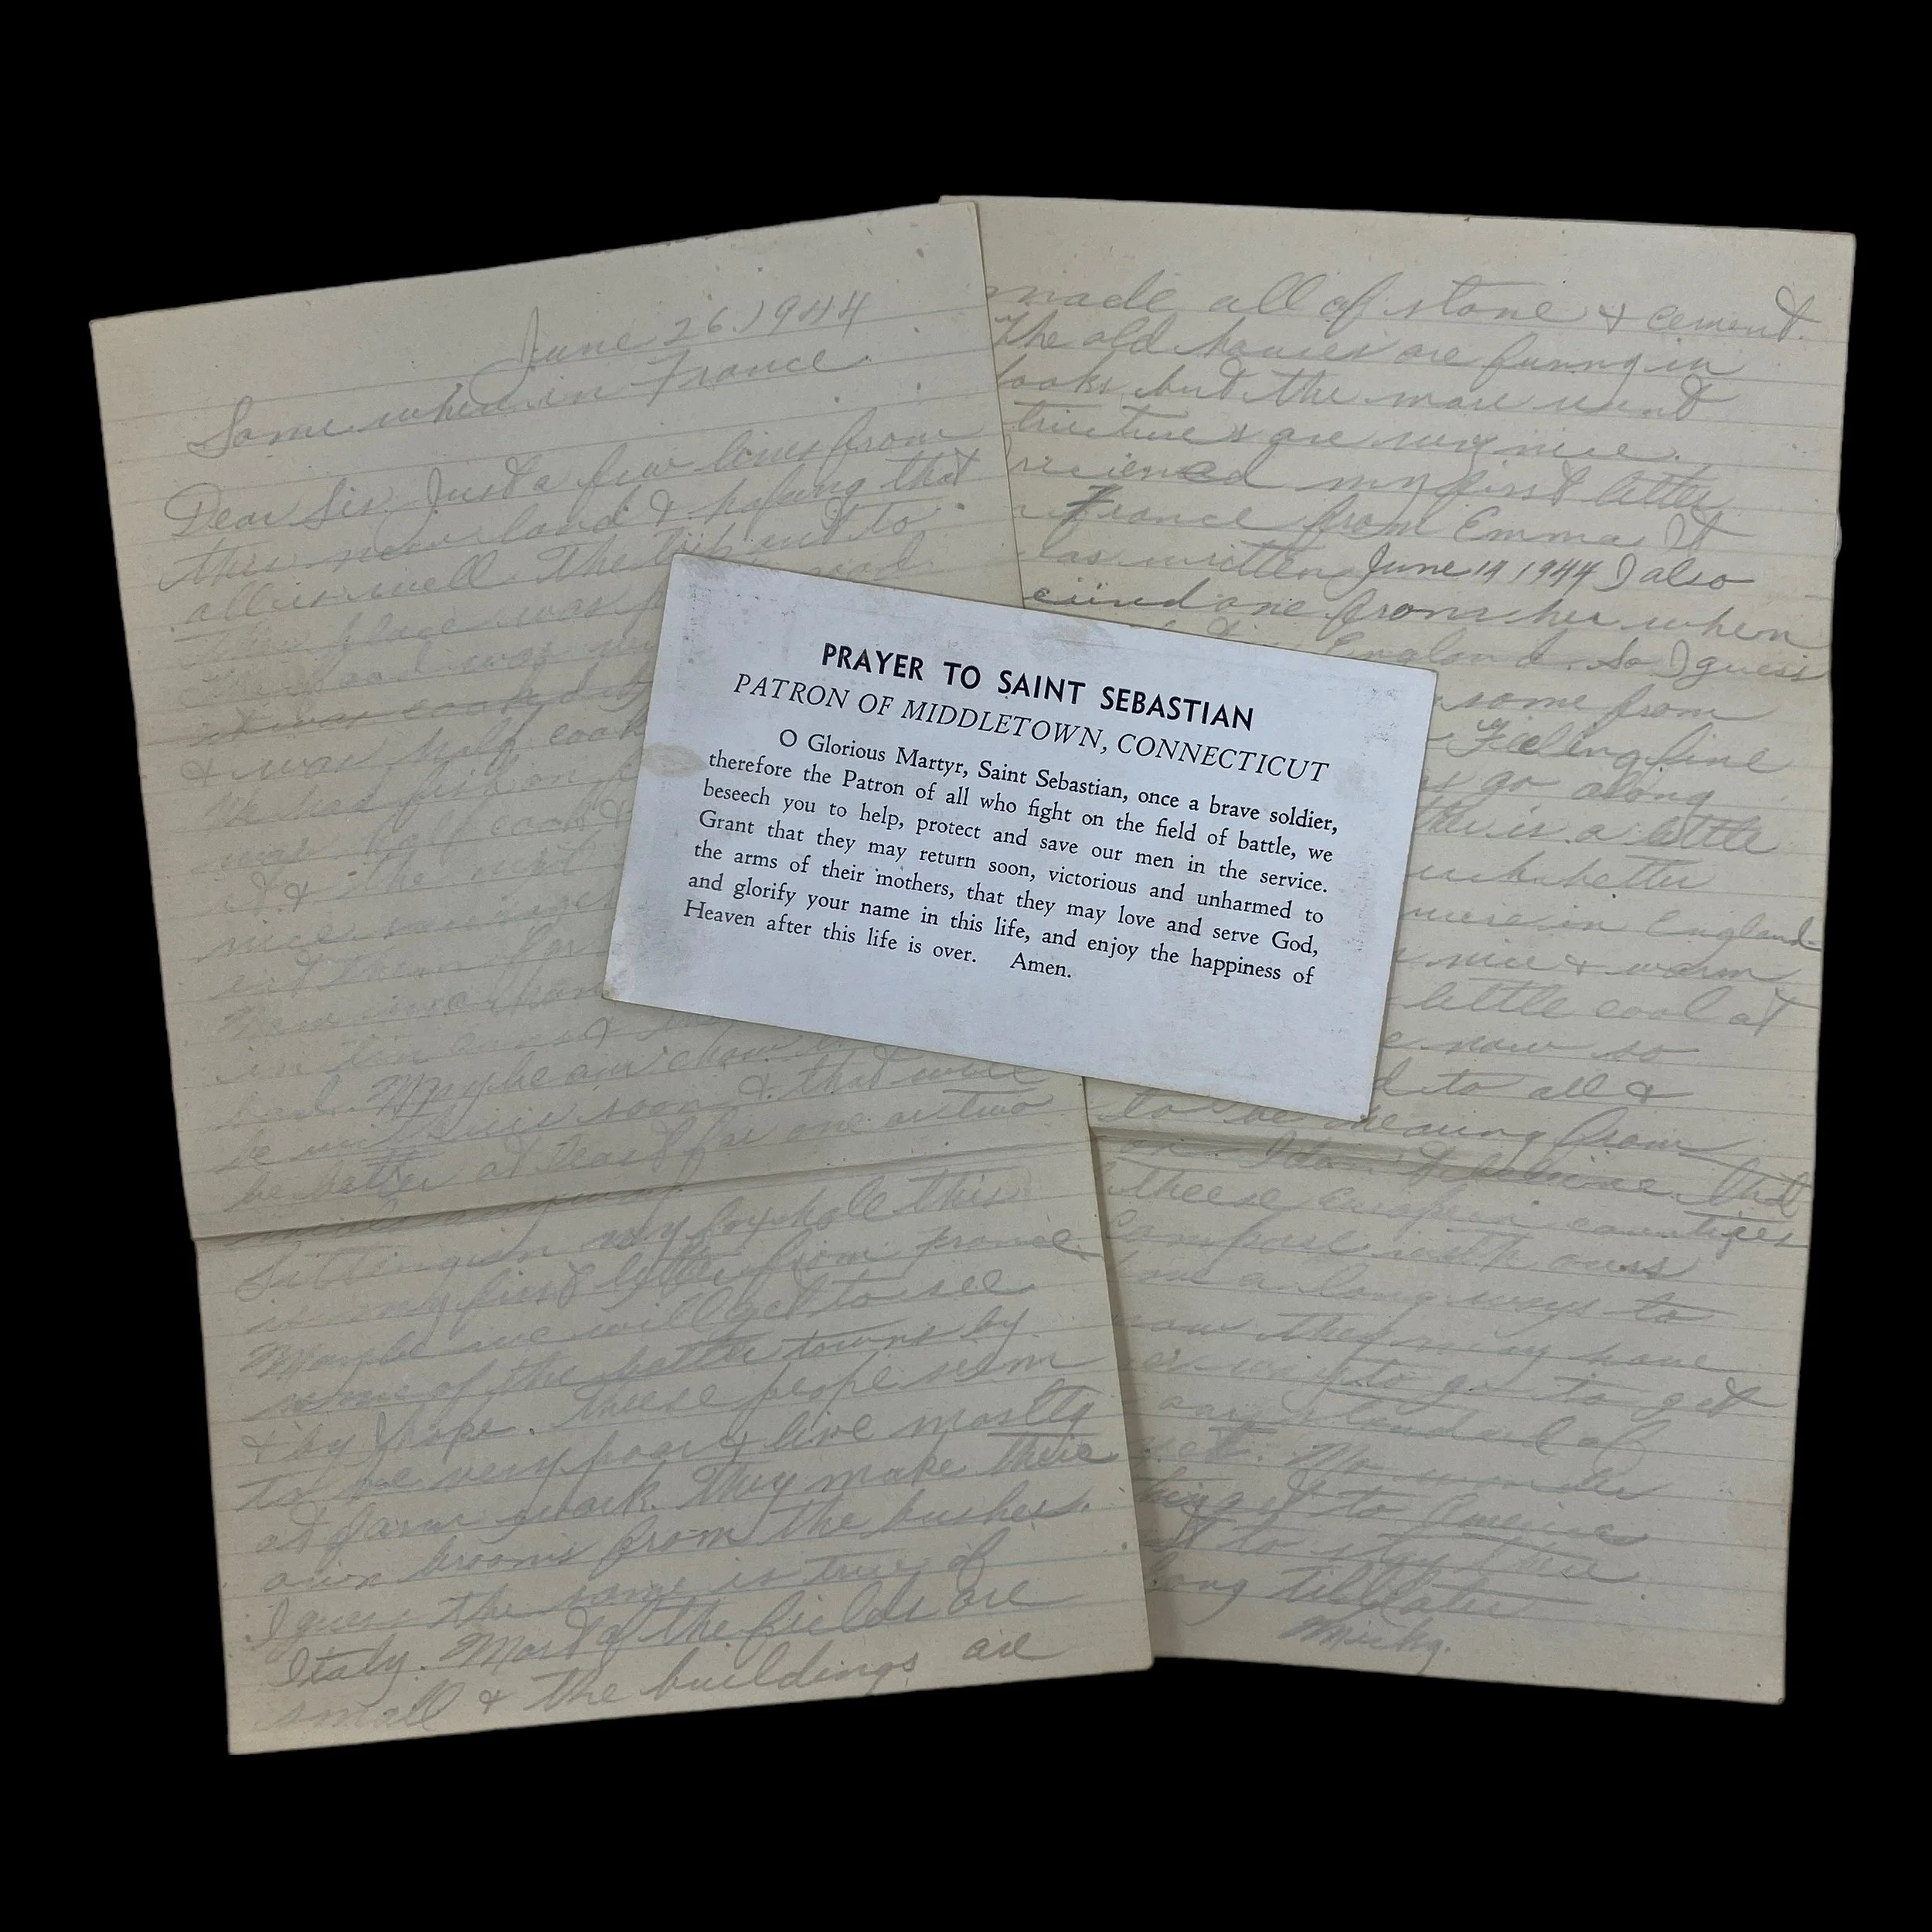 June 26, 1944
Some where in France
Dear Sis. Just a few lines from
this new land & hoping that
all is well. The trip out to
this place was
it was cooked
& was half cook
We had fish on
was half cook
& the next
nice
eat them
Now we have
in tin cans &
bad. Maybe our chow
be with us soon & that will
be better at least for one or two
Sitting in my fox hole this
is my first letter from france.
Maybe we will get to see
some of the better towns by
& by I hope. Theese people seem
to be very poor & live mostly
at farm work. They make there
own brooms from the bushes.
I guess the same is true of
Italy. Most of the fields are
small & the buildings are
made all of stone & cement.
The old houses are funny in
looks but the more
tructures are very nice.
my first letter
France from Emma. It
as written June 14 1944 I also
one from her when
England. So I guess
some from
Feeling fine
as go along
is a little
better
were in England.
nice & warm
little cool at
now so
d to all &
to be hearing from
I don't believe that
theese European countries
Compare with ours
a long ways to
they may have
to go to get
our standard of
No wonder
get to America
to stay
long till later
Micky.
PRAYER TO SAINT SEBASTIAN
PATRON OF MIDDLETOWN, CONNECTICUT
O Glorious Martyr, Saint Sebastian, once a brave soldier,
therefore the Patron of all who fight on the field of battle, we
beseech you to help, protect and save our men in the service.
Grant that they may return soon, victorious and unharmed to
the arms of their mothers, that they may love and serve God,
and glorify your name in this life, and enjoy the happiness of
Heaven after this life is over. Amen.